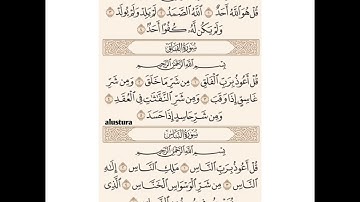 قُلْ هُوَ اللَّهُ أَحَدٌ ۝ اللَّهُ الصَّمَدُ ۝ لَمْ يَلِدْ وَلَمْ يُولَدْ ۝
وَلَمْ يَكُن لَّهُ كُفُوًا أَحَدٌ ۝
سُورَةُ الْفَلَقِ
بِسْمِ اللَّهِ الرَّحْمَٰنِ الرَّحِيمِ
قُلْ أَعُوذُ بِرَبِّ الْفَلَقِ ۝ مِن شَرِّ مَا خَلَقَ ۝ وَمِن شَرِّ
غَاسِقٍ إِذَا وَقَبَ ۝ وَمِن شَرِّ النَّفَّاثَاتِ فِي الْعُقَدِ ۝
وَمِن شَرِّ حَاسِدٍ إِذَا حَسَدَ ۝
alustura
سُورَةُ النَّاسِ
بِسْمِ اللَّهِ الرَّحْمَٰنِ الرَّحِيمِ
قُلْ أَعُوذُ بِرَبِّ النَّاسِ ۝ مَلِكِ النَّاسِ ۝ إِلَٰهِ
النَّاسِ ۝ مِن شَرِّ الْوَسْوَاسِ الْخَنَّاسِ ۝ الَّذِي